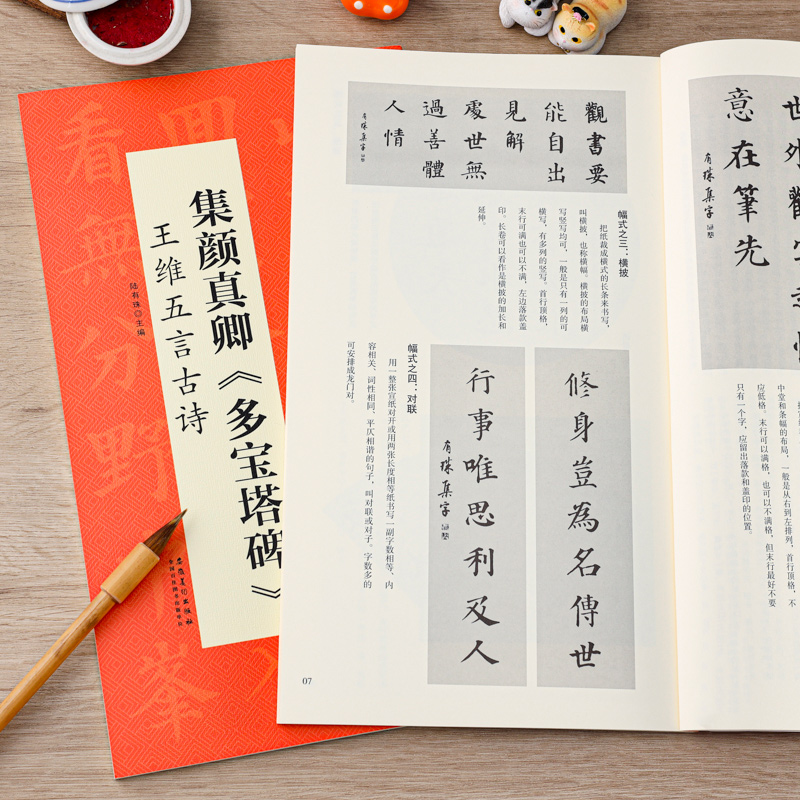 集颜真卿《多宝塔碑》
王维五言古诗
陆有珠◎主编
安徽美术出版社
全国百佳图书出版单位
看無勿野
峯
觀書要
能自出
見解
處世無
過善體
人情
有珠集字
幅式之三：横披
把纸裁成横式的长条来书写，
叫横披，也称横幅。横披的布局横
写竖写均可，一般是只有一列的可
横写，有多列的竖写。首行顶格，
末行可满也可以不满，左边落款盖
印。长卷可以看作是横披的加长和
延伸。
幅式之四：对联
用一整张宣纸对开或用两张长度相等纸书写一副字数相等、内
容相关、词性相同、平仄相谐的句子，叫对联或对子。字数多的
可安排成龙门对。
修身豈為名傳世
行事唯思利及人
有珠集字
07
世外觀
意在筆先
有珠集字
中堂和条幅的布局，一般是从右到左排列，首行顶格，不
应低格。末行可以满格，也可以不满格，但末行最好不要
只有一个字，应留出落款和盖印的位置。